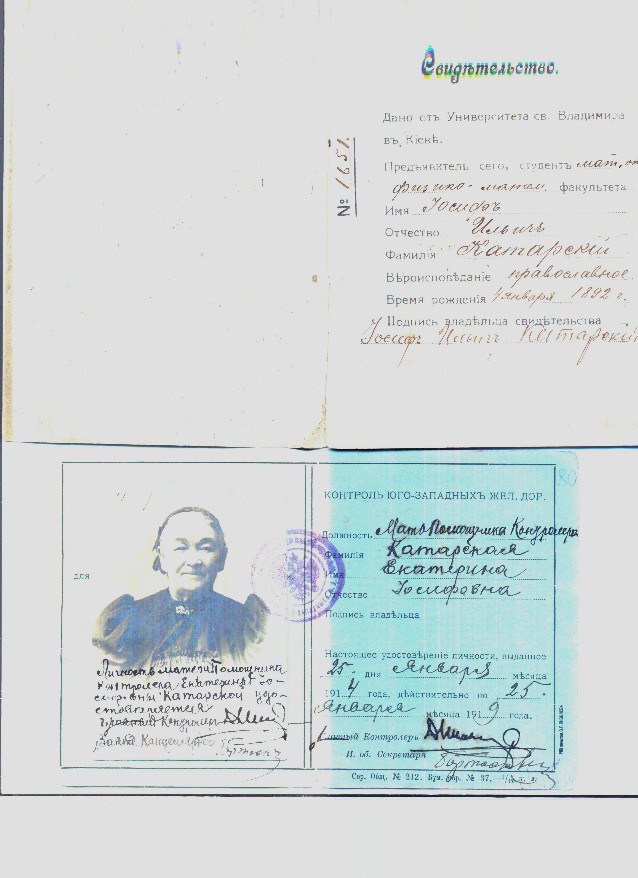 Свидѣтельство.
Дано отъ Университета св. Владимира
въ Кіевѣ.
№ 1651.
Предъявитель сего, студентъ мат. от
физико-матем. факультета
Имя Іосифъ
Отчество Ильичъ
Фамилія Катарскій
Вѣроисповѣданіе православное
Время рожденія 1 января 1892 г.
Подпись владѣльца свидѣтельства
Іосифъ Ильичъ Катарскій
КОНТРОЛЬ ЮГО-ЗАПАДНЫХЪ ЖЕЛ. ДОР.
Должность Мать Помощника Контролера
Фамилія Катарская
Имя Екатерина
Отчество Іосифовна
Подпись владѣльца
для
Личность матери Помощника
Контролера Екатерины Іо-
сифовны Катарской удо-
стовѣряется
Главный Контролеръ
Настоящее удостовѣреніе личности, выданное
25 дня Января мѣсяца
1914 года, дѣйствительно по 25
Января мѣсяца 1919 года.
Главный Контролеръ
И. об. Секретаря
Скр. Общ. № 212. Бум. фбр. № 37.